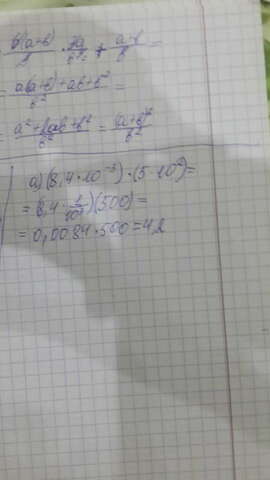 = a(a+b)+ab+b² / b² =
= a²+2ab+b² / b² = (a+b)² / b²
a) (8,4 · 10⁻³) · (5 · 10²) =
= (8,4 · 1/10³)(500) =
= 0,0084 · 500 = 4,2